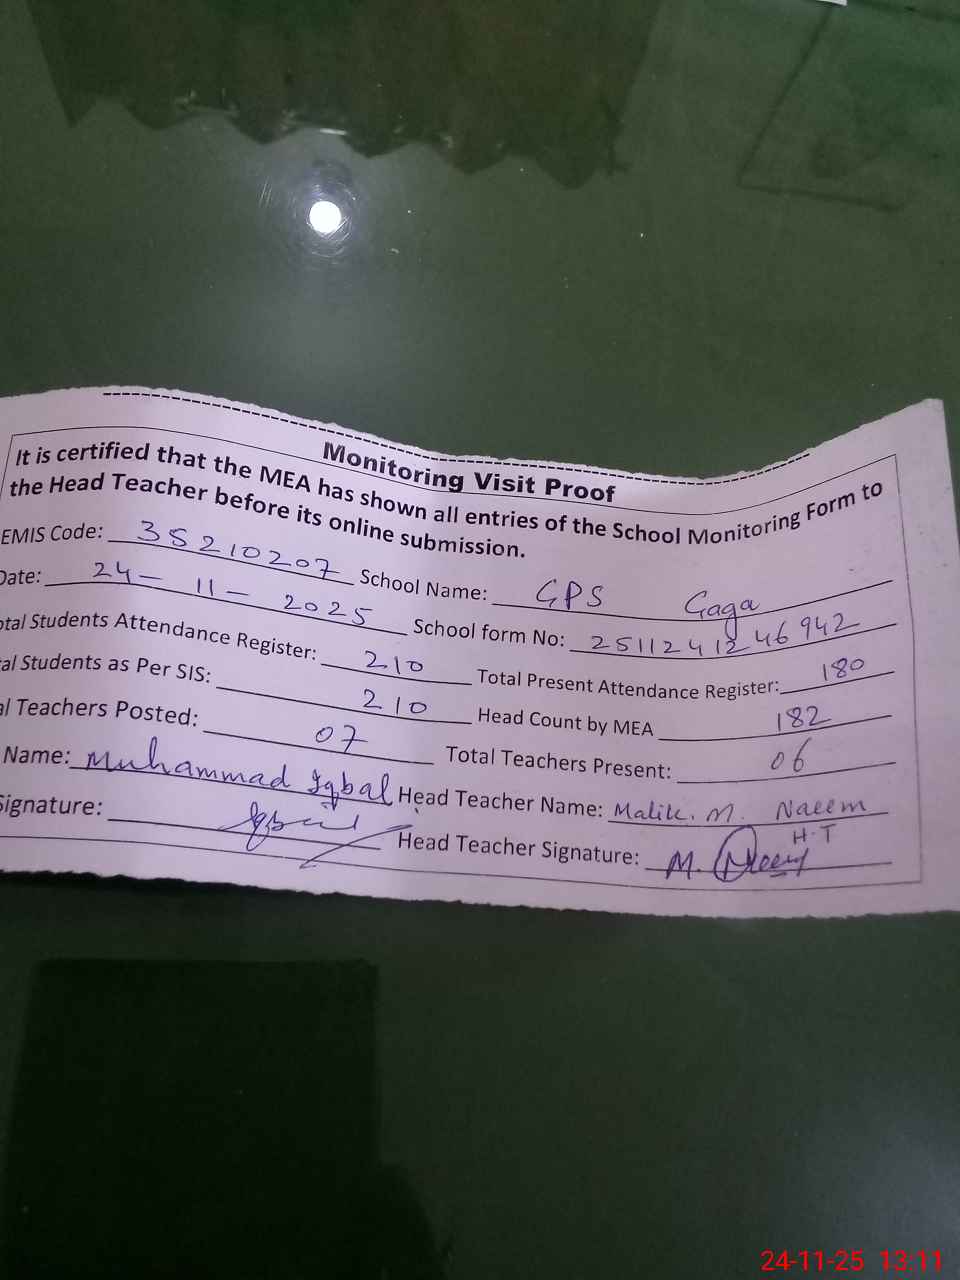 Monitoring Visit Proof
It is certified that the MEA has shown all entries of the School Monitoring Form to
the Head Teacher before its online submission.
EMIS Code: 35210207 School Name: GPS Gaga
Date: 24-11-2025 School form No: 2511241246942
otal Students Attendance Register: 210 Total Present Attendance Register: 180
al Students as Per SIS: 210 Head Count by MEA 182
al Teachers Posted: 07 Total Teachers Present: 06
Name: Muhammad Iqbal Head Teacher Name: Malik. M. Naeem
H.T
Signature: Iqbal Head Teacher Signature: M. Naeem
24-11-25 13:11